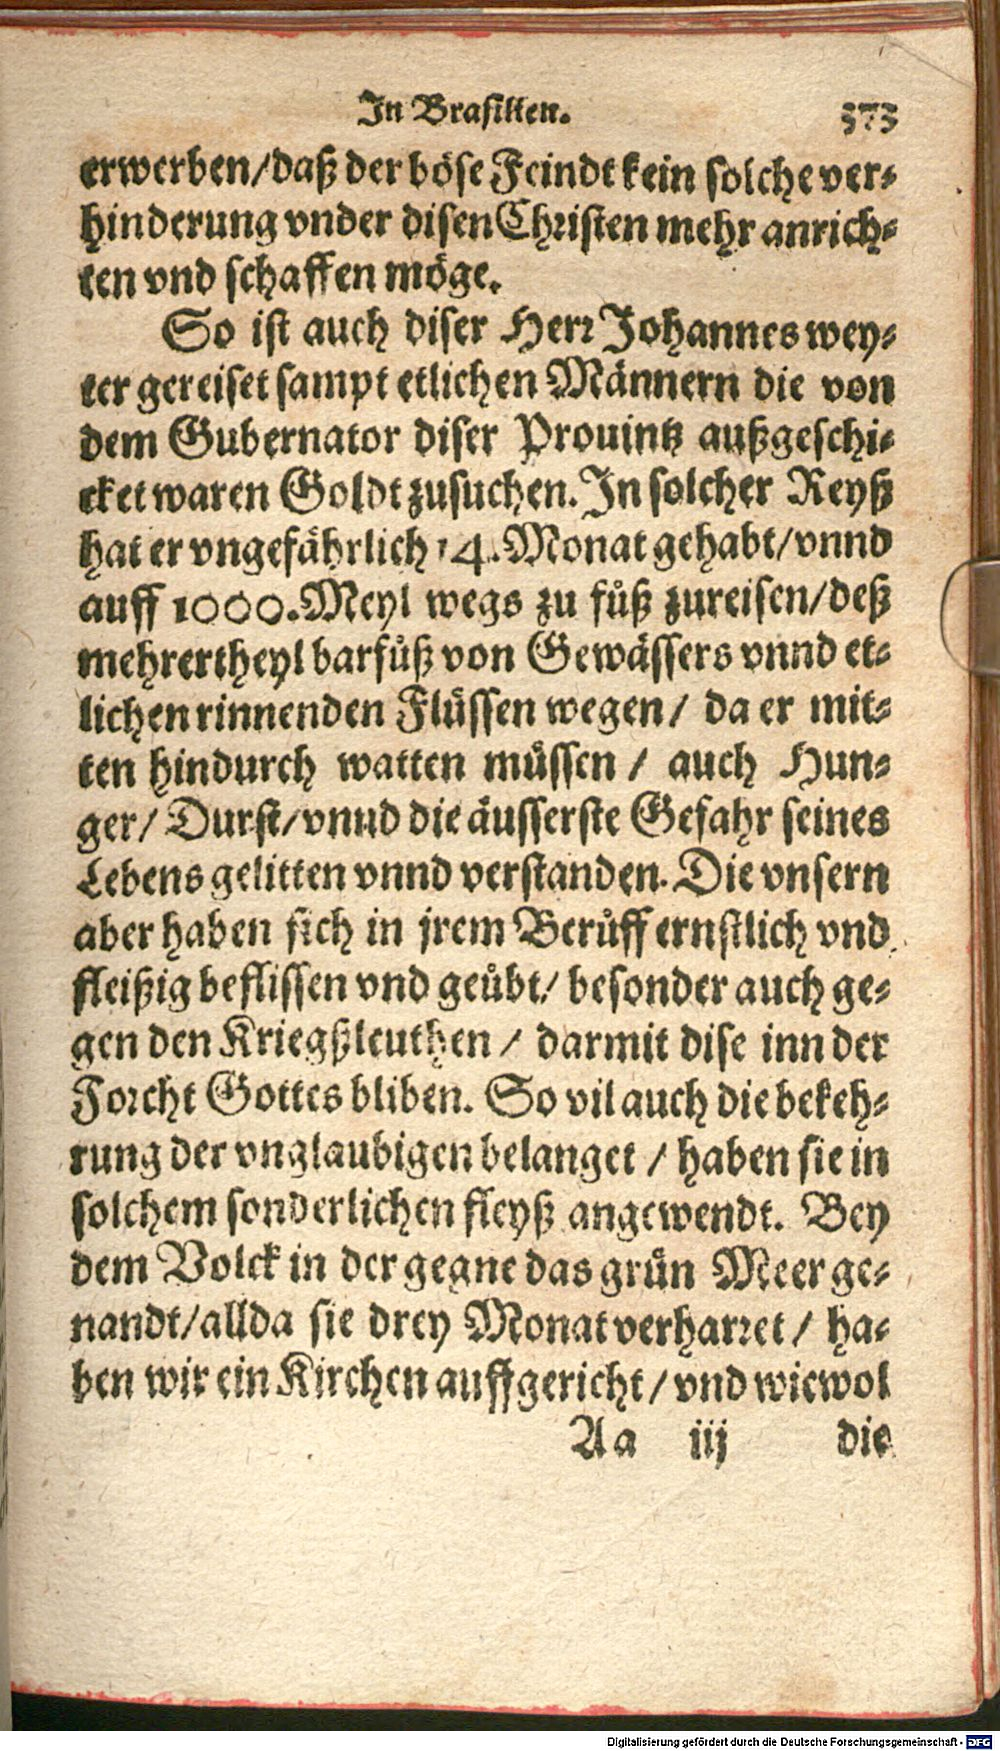 In Brasilien. 373
erwerben/daß der böse Feindt kein solche ver⸗
hinderung vnder disen Christen mehr anrich⸗
ten vnd schaffen möge.
So ist auch diser Herr Johannes wey⸗
ter gereiset sampt etlichen Männern die von
dem Gubernator diser Prouintz außgeschi⸗
cket waren Goldt zusuchen. In solcher Reyß
hat er vngefährlich 14. Monat gehabt/vnnd
auff 1000. Meyl wegs zu fůß zureisen/deß
mehrertheyl barfůß von Gewässers vnnd et⸗
lichen rinnenden Flüssen wegen/ da er mit⸗
ten hindurch watten müssen / auch Hun⸗
ger/ Durst/vnnd die äusserste Gefahr seines
Lebens gelitten vnnd verstanden. Die vnsern
aber haben sich in jrem Berůff ernstlich vnd
fleißig beflissen vnd geübt/ besonder auch ge⸗
gen den Kriegßleuthen / darmit dise inn der
Forcht Gottes bliben. So vil auch die bekeh⸗
rung der vnglaubigen belanget / haben sie in
solchem sonderlichen fleyß angewendt. Bey
dem Volck in der gegne das grün Meer ge⸗
nandt/allda sie drey Monat verharret / ha⸗
ben wir ein Kirchen auffgericht/vnd wiewol
Aa iij die
Digitalisierung gefördert durch die Deutsche Forschungsgemeinschaft - DFG